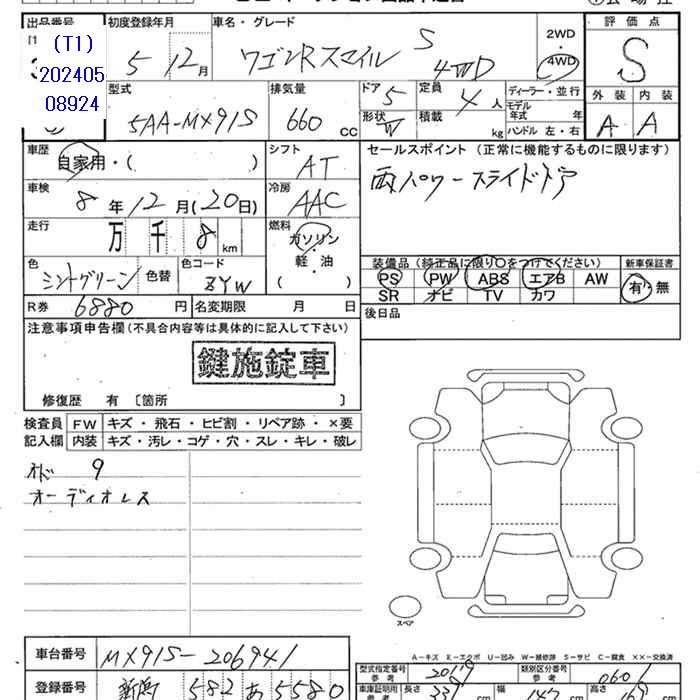 出品番号 初度登録年月 車名・グレード 評価点
(T1)
202405
08924
5 12月
ワゴンRスマイル S 4WD
2WD
・
4WD
S
型式 排気量 ドア 定員 ディーラー・並行 外装 内装
5AA-MX91S 660 cc
5 4人
モデル年式 年
形状 W 積載 kg ハンドル 左・右
A A
車歴 自家用・( ) シフト AT
セールスポイント (正常に機能するものに限ります)
両パワースライドドア
車検 8年12月(20日) 冷房 AAC
走行 万 千 8 km 燃料 ガソリン
軽・油
( )
色 ミントグリーン 色替 色コード ZYW
装備品 (純正品に限り○をつけてください) 新車保証書
PS PW ABS エアB AW 有・無
SR ナビ TV カワ
R券 6880円 名変期限 月 日
後日品
注意事項申告欄(不具合内容等は具体的に記入して下さい)
鍵施錠車
修復歴 有 [箇所 ]
検査員 FW キズ・飛石・ヒビ割・リペア跡・×要
記入欄 内装 キズ・汚レ・コゲ・穴・スレ・キレ・破レ
メド 9
オーディオレス
スペア
A-キズ E-エクボ U-凹み W-補修跡 S-サビ C-腐食 ××-交換済
車台番号 MX91S-206941
型式指定番号 参考 20119 類別区分番号 参考 0601
登録番号 新潟 582 あ 5580
車庫証明用 参考 長さ cm 幅 147 cm 高さ cm